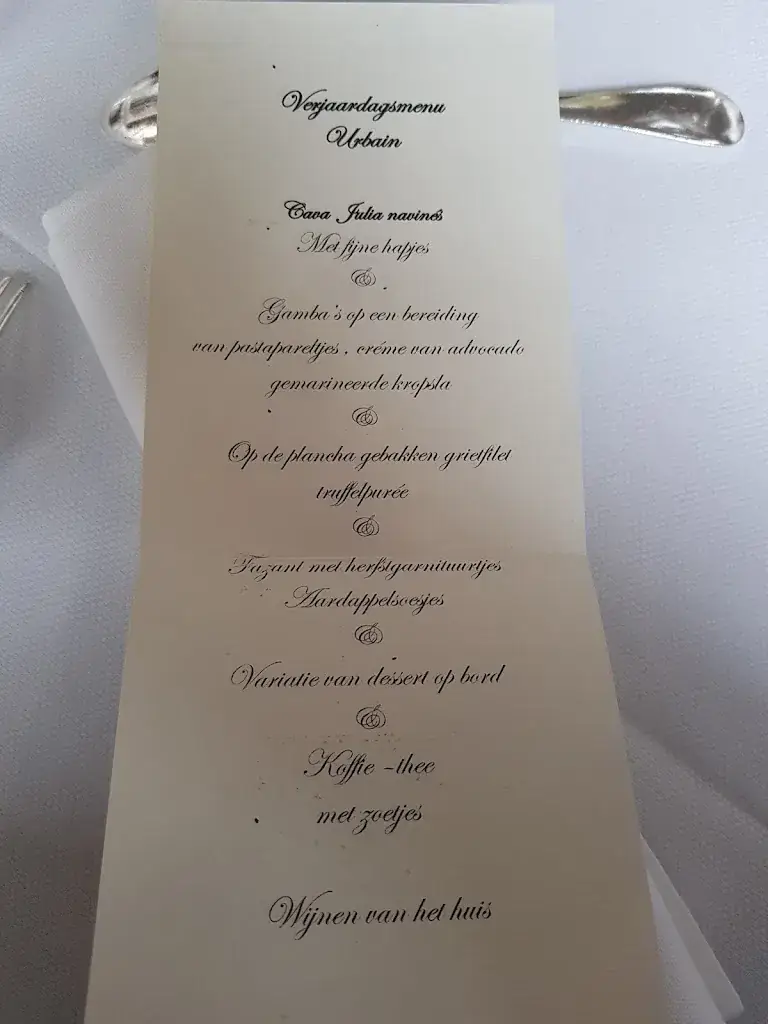 Verjaardagsmenu
Urbain
Cava Julia navinés
Met fijne hapjes
&
Gamba's op een bereiding
van pastapareltjes, créme van advocado
gemarineerde kropsla
&
Op de plancha gebakken grietfilet
truffelpurée
&
Fazant met herfstgarnituurtjes
Aardappelsoesjes
&
Variatie van dessert op bord
&
Koffie -thee
met zoetjes
Wijnen van het huis